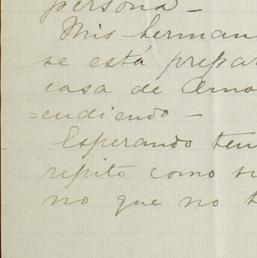 persona -
Mis herman
se está prepar
casa de Ama
=cudiendo -
Esperando ten
repito como su
no que no t